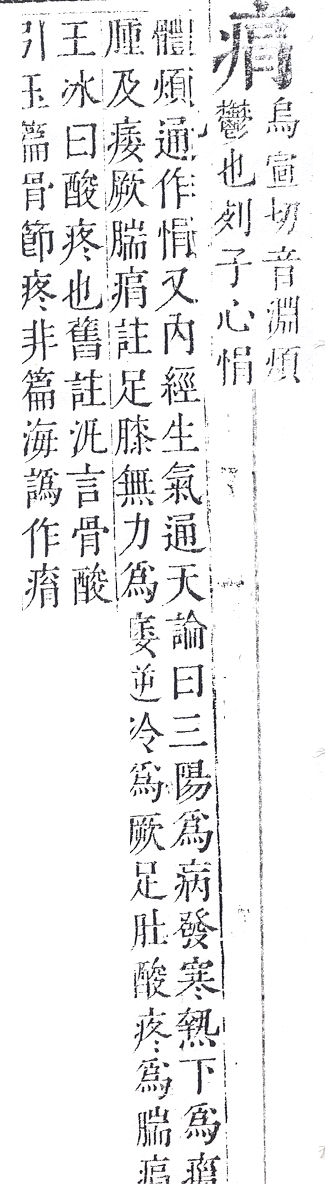 㾓
烏宣切音淵煩
鬱也列子心悁
體煩通作悁又內經生氣通天論曰三陽爲病發寒熱下爲癰
腫及痿厥腨㾓註足膝無力爲痿逆冷爲厥足肚酸疼爲腨㾓
王冰曰酸疼也舊註汎言骨酸
引玉篇骨節疼非篇海譌作